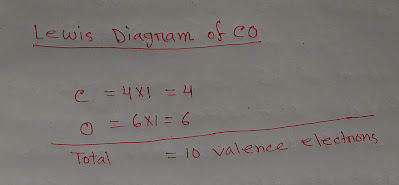 Lewis Diagram of CO
C = 4x1 = 4
O = 6x1 = 6
Total = 10 valence electrons